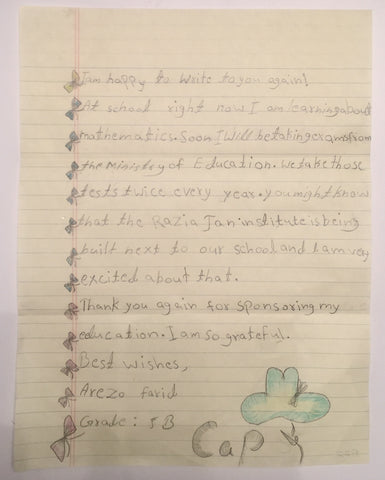 I am happy to write to you again!
At school right now I am learning about
mathematics. Soon I will be taking exams from
the Ministry of Education. We take those
tests twice every year. You might know
that the Razia Jan institute is being
built next to our school and I am very
excited about that.
Thank you again for sponsoring my
education. I am so grateful.
Best wishes,
Arezo farid
Grade: 5 B
Cap